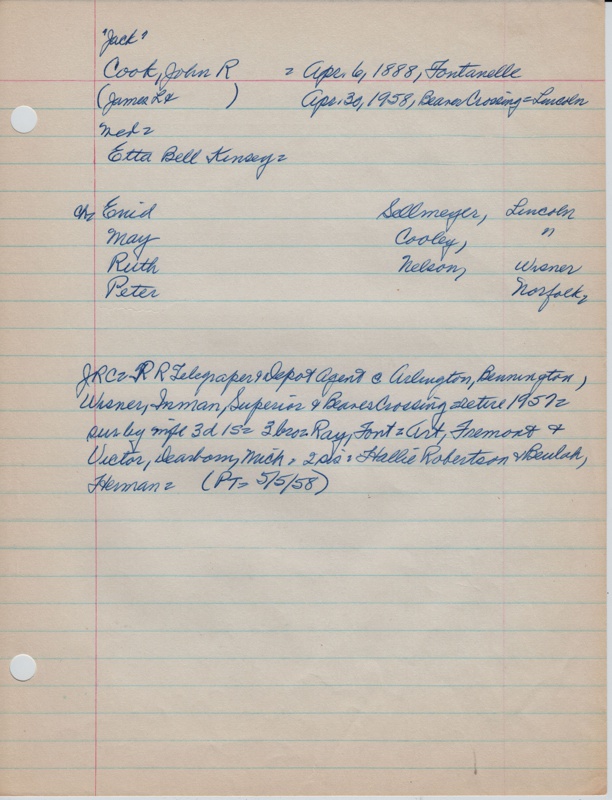 "Jack"
Cook, John R = Apr. 6, 1888, Fontanelle
(James L & ) Apr. 30, 1958, Beaver Crossing = Lincoln
med =
Etta Bell Kinsey =
ch Enid Sellmeyer, Lincoln
May Cooley, "
Ruth Nelson, Wisner
Peter Norfolk,
JRC = RR Telegraper & Depot Agent @ Arlington, Bennington,
Wisner, Inman, Superior & Beaver Crossing = retire 1957 =
sur by wife 3d 1s = 3 bro = Ray, Font = Art, Fremont &
Victor, Dearborn, Mich. 2 sis = Hallie Robertson & Beulah,
Herman = (PT = 5/5/58)